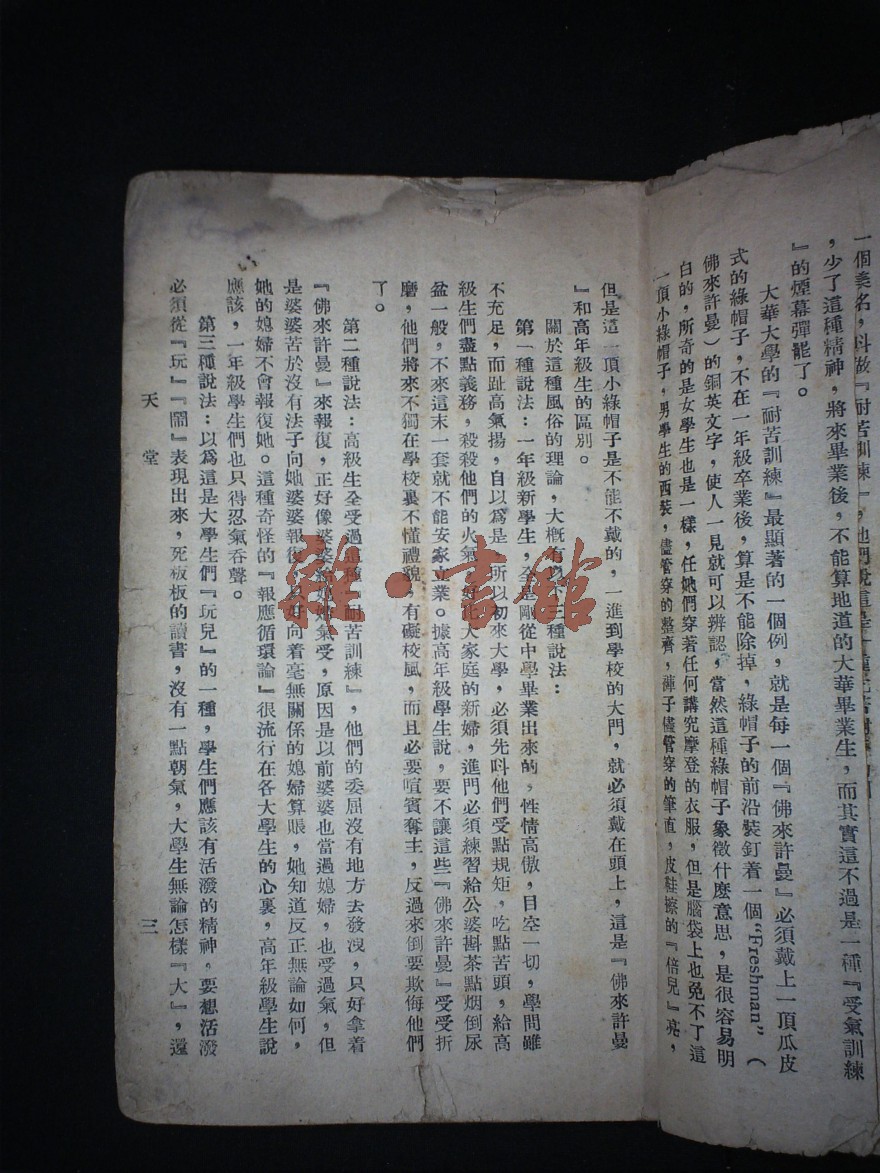 一個美名，叫做『耐苦訓練』，他們說這是一種
，少了這種精神，將來畢業後，不能算地道的大華畢業生，而其實這不過是一種『受氣訓練
』的煙幕彈罷了。
大華大學的『耐苦訓練』最顯著的一個例，就是每一個『佛來許曼』必須戴上一頂瓜皮
式的綠帽子，不在一年級卒業後，算是不能除掉，綠帽子的前沿裝釘着一個“Freshman”（
佛來許曼）的銅英文字，使人一見就可以辨認，當然這種綠帽子象徵什麼意思，是很容易明
白的，所奇的是女學生也是一樣，任她們穿著任何講究摩登的衣服，但是腦袋上也免不了這
一頂小綠帽子，男學生的西裝，儘管穿的整齊，褲子儘管穿的筆直，皮鞋擦的『倍兒』亮，
但是這一頂小綠帽子是不能不戴的，一進到學校的大門，就必須戴在頭上，這是『佛來許曼
』和高年級生的區別。
關於這種風俗的理論，大概有以下三種說法：
第一種說法：一年級新學生，全是剛從中學畢業出來的，性情高傲，目空一切，學問雖
不充足，而趾高氣揚，自以為是，所以初來大學，必須先呌他們受點規矩，吃點苦頭，給高
級生們盡點義務，殺殺他們的火氣，好比大家庭的新婦，進門必須練習給公婆斟茶點烟倒尿
盆一般，不來這末一套就不能安家立業。據高年級學生說，要不讓這些『佛來許曼』受受折
磨，他們將來不獨在學校裏不懂禮貌，有礙校風，而且必要喧賓奪主，反過來倒要欺侮他們
了。
第二種說法：高級生全受過這種『耐苦訓練』，他們的委屈沒有地方去發洩，只好拿着
『佛來許曼』來報復，正好像婆婆給媳婦氣受，原因是以前婆婆也當過媳婦，也受過氣，但
是婆婆苦於沒有法子向她婆婆報復，只好向着毫無關係的媳婦算賬，她知道反正無論如何，
她的媳婦不會報復她。這種奇怪的『報應循環論』很流行在各大學生的心裏，高年級學生說
應該，一年級學生們也只得忍氣吞聲。
第三種說法：以為這是大學生們『玩兒』的一種，學生們應該有活潑的精神。要想活潑
必須從『玩』『鬧』表現出來，死板板的讀書，沒有一點朝氣，大學生無論怎樣『大』，還
天堂
三
雜·書館